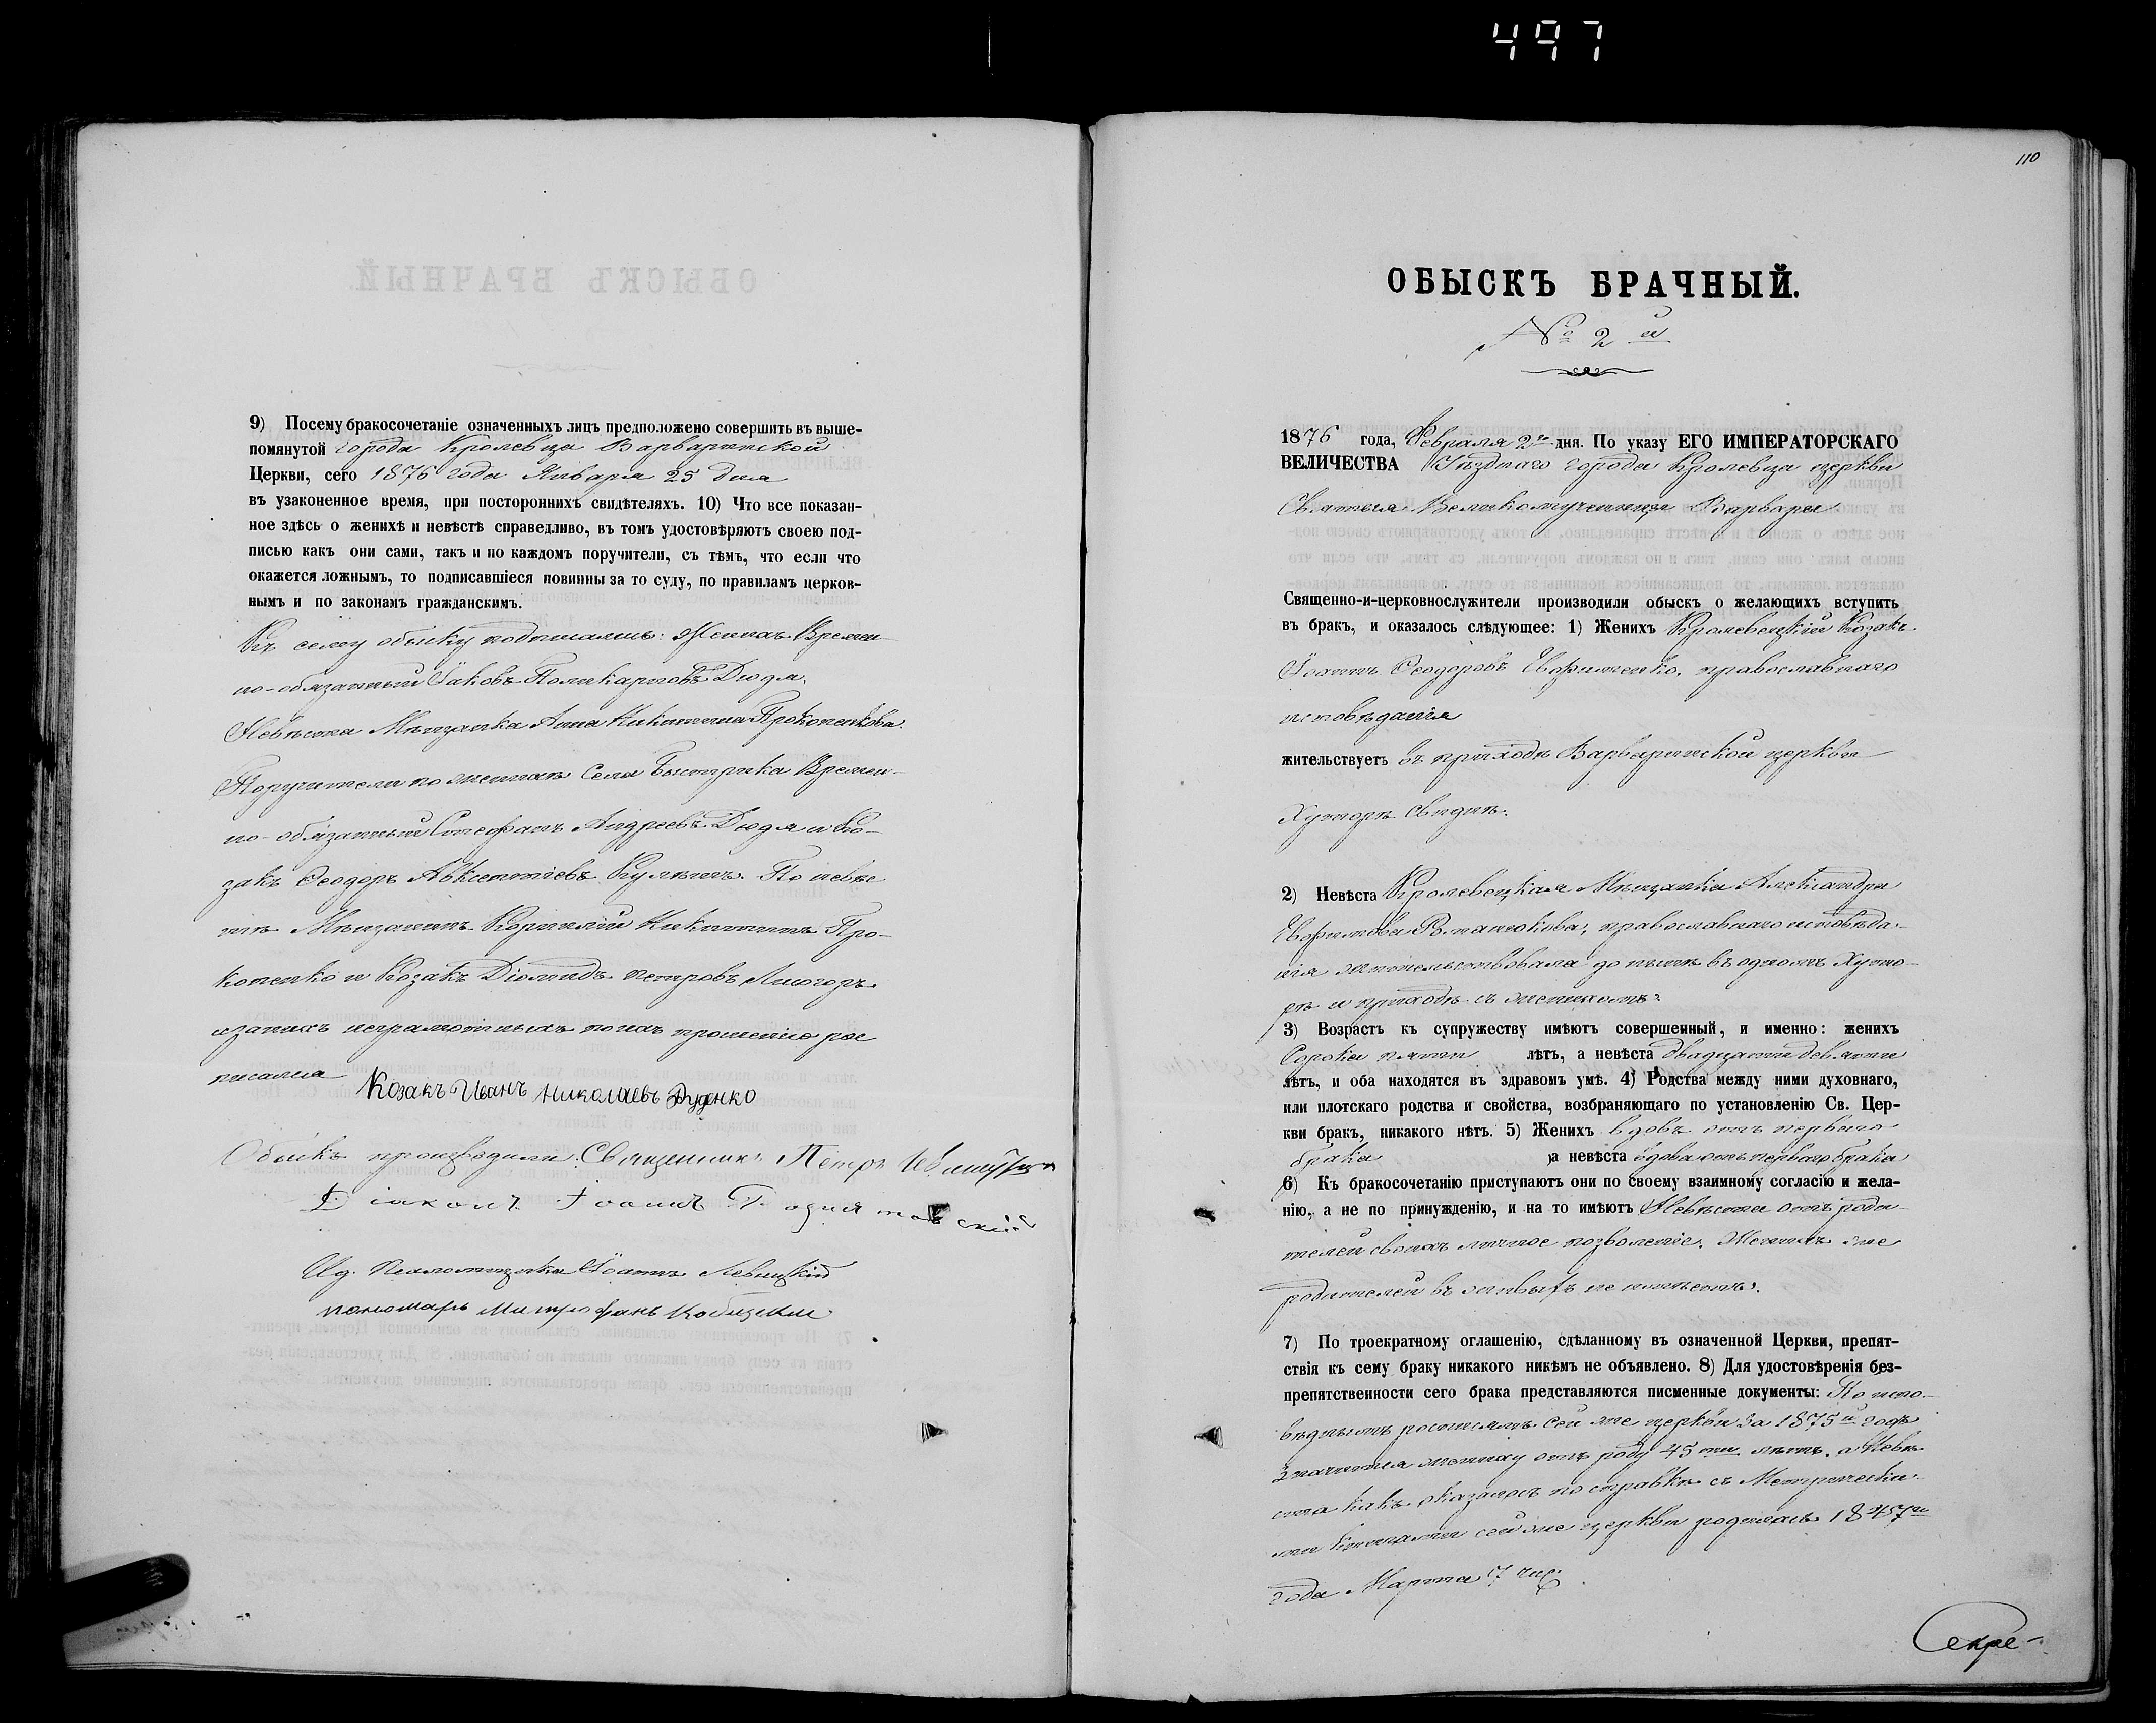 497
9) Посему бракосочетаніе означенныхъ лицъ предположено совершить въ выше-
помянутой города Кролевца Варваринской
Церкви, сего 1876 года Января 25 дня
въ узаконенное время, при постороннихъ свидѣтеляхъ. 10) Что все показан-
ное здѣсь о женихѣ и невѣстѣ справедливо, въ томъ удостовѣряютъ своею под-
писью какъ они сами, такъ и по каждомъ поручители, съ тѣмъ, что если что
окажется ложнымъ, то подписавшіеся повинны за то суду, по правиламъ церков-
нымъ и по законамъ гражданскимъ.
Къ сему обыску подписались: Женихъ Времен-
но-обязанный Іаковъ Поликарповъ Дюдя.
Невѣста Мѣщанка Анна Никитина Прокопенкова.
Поручители по женихѣ Села Быстрика Времен-
но-обязанный Стефанъ Андреевъ Дюдя и Ко-
закъ Ѳеодоръ Авксентіевъ По невѣс
тѣ Мѣщанинъ Корнилій Никитинъ Про-
копенко и Козакъ Діомидъ Петровъ
а за нихъ неграмотныхъ по ихъ прошенію рос
писался Козакъ Иванъ Николаевъ Руденко
Обыскъ производили: Священникъ Петръ
Діаконъ Іоаннъ
И. д. Псаломщика Іоаннъ Левицкій
пономарь Митрофанъ
110
ОБЫСКЪ БРАЧНЫЙ.
№ 2й
1876 года, Февраля 2го дня. По указу ЕГО ИМПЕРАТОРСКАГО
ВЕЛИЧЕСТВА Уѣзднаго города Кролевца церкви
Святыя Великомученицы Варвары
Священно-и-церковнослужители производили обыскъ о желающихъ вступить
въ бракъ, и оказалось слѣдующее: 1) Женихъ Кролевецкій Козакъ
Іоаннъ Ѳеодоровъ Евфименко, православнаго
исповѣданія
жительствуетъ въ приходѣ Варваринской церкви
Хуторѣ Свиднѣ.
2) Невѣста Кролевецкая Мѣщанка Александра
Евфимова Романенкова, православнаго исповѣда-
нія жительствовала до нынѣ въ одномъ Хуто-
рѣ и приходѣ съ женихомъ.
3) Возрастъ къ супружеству имѣютъ совершенный, и именно: женихъ
Сорока пяти лѣтъ, а невѣста двадцати девяти
лѣтъ, и оба находятся въ здравомъ умѣ. 4) Родства между ними духовнаго,
или плотскаго родства и свойства, возбраняющаго по установленію Св. Цер-
кви бракъ, никакого нѣтъ. 5) Женихъ вдовъ отъ перваго
брака а невѣста вдова отъ перваго брака
6) Къ бракосочетанію приступаютъ они по своему взаимному согласію и жела-
нію, а не по принужденію, и на то имѣютъ Невѣста отъ роди-
телей своихъ личное позволеніе. Женихъ же
родителей въ живыхъ не имѣетъ.
7) По троекратному оглашенію, сдѣланному въ означенной Церкви, препят-
ствія къ сему браку никакого никѣмъ не объявлено. 8) Для удостовѣренія без-
препятственности сего брака представляются писменные документы: По испо-
вѣднымъ росписямъ сей же церкви за 1875й годъ
значится жениху отъ роду 45ть лѣтъ, а Невѣ
ста какъ оказалось по справкѣ съ Метрически-
ми книгами сей же церкви родилась 1847го
года Марта 7 чис.
Секре-